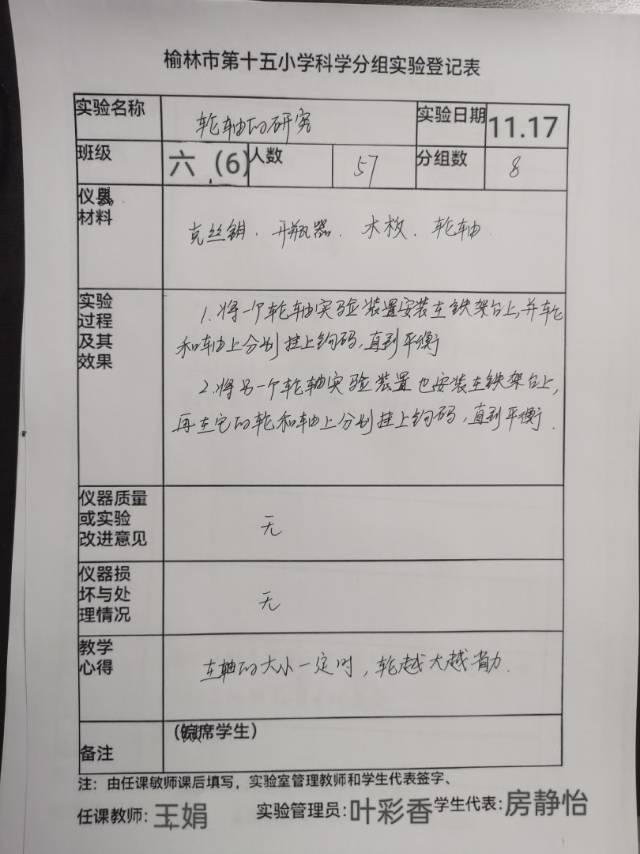 榆林市第十五小学科学分组实验登记表
实验名称 轮轴的研究 实验日期 11.17
班级 六（6） 人数 57 分组数 8
仪器
材料
克丝钳、开瓶器、木板、轮轴
实验
过程
及其
效果
1.将一个轮轴实验装置安装在铁架台上,并轮
和车轴上分别挂上钩码,直到平衡
2.将另一个轮轴实验装置也安装在铁架台上,
再在它的轮和车轴上分别挂上钩码,直到平衡.
仪器质量
或实验
改进意见
无
仪器损
坏与处
理情况
无
教学
心得
在轴的大小一定时,轮越大越省力.
备注
（缺席学生）
注：由任课敏师课后填写，实验室管理教师和学生代表签字、
任课教师: 王娟 实验管理员:叶彩香 学生代表: 房静怡